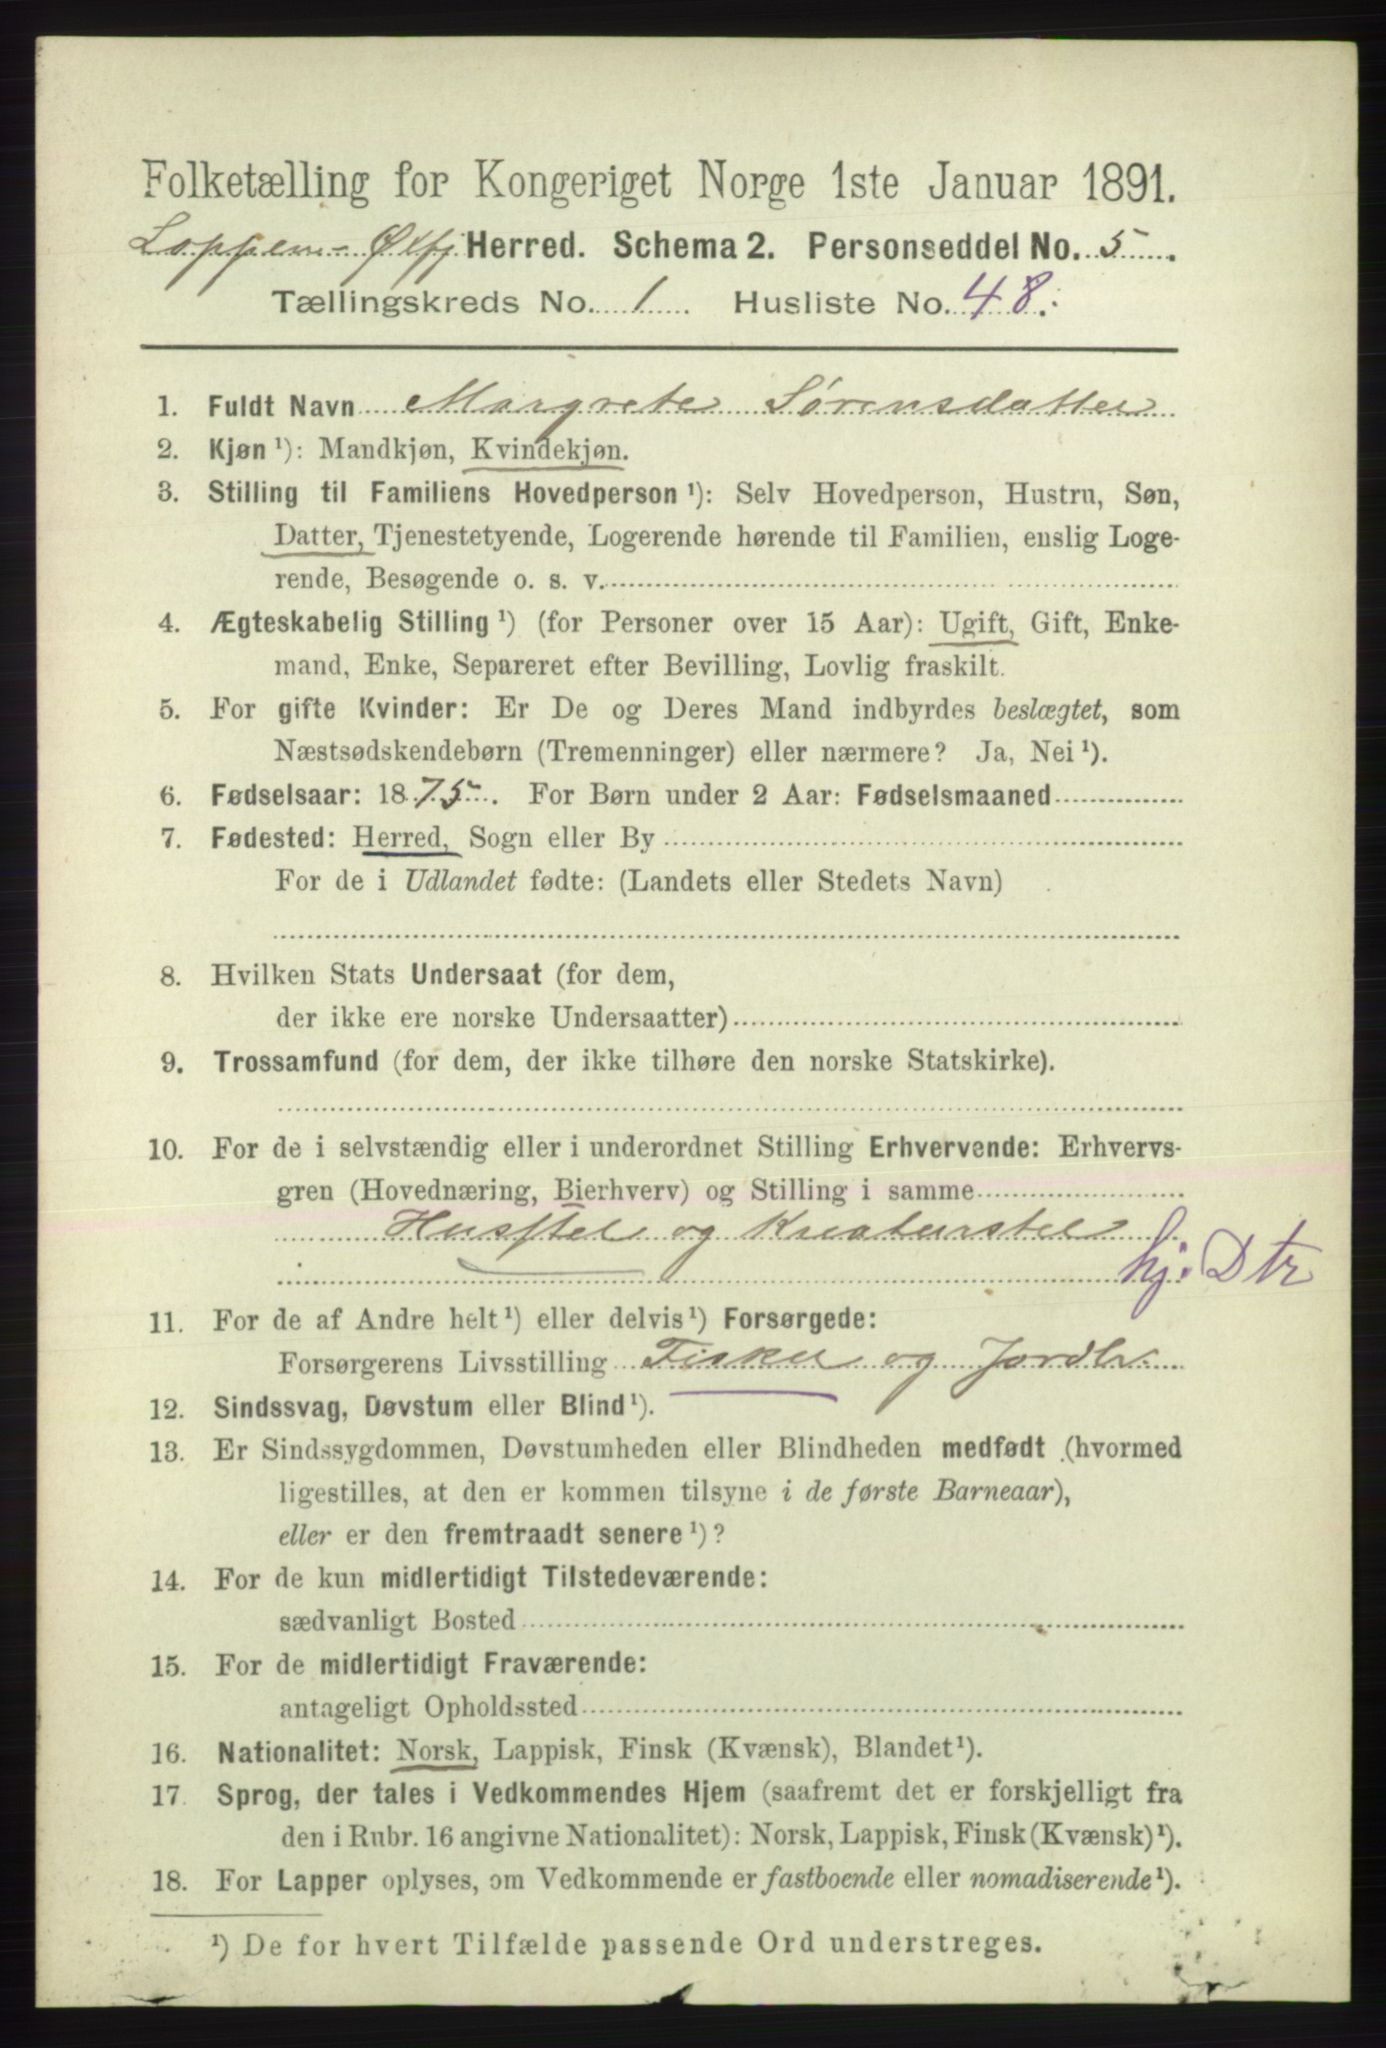 Folketælling for Kongeriget Norge 1ste Januar 1891.
Loppen - Øxfj Herred. Schema 2. Personseddel No. 5
Tællingskreds No. 1 Husliste No. 48.
1. Fuldt Navn Margrete Sørensdatter
2. Kjøn ¹): Mandkjøn, Kvindekjøn.
3. Stilling til Familiens Hovedperson ¹): Selv Hovedperson, Hustru, Søn,
Datter, Tjenestetyende, Logerende hørende til Familien, enslig Loge-
rende, Besøgende o. s. v.
4. Ægteskabelig Stilling ¹) (for Personer over 15 Aar): Ugift, Gift, Enke-
mand, Enke, Separeret efter Bevilling, Lovlig fraskilt.
5. For gifte Kvinder: Er De og Deres Mand indbyrdes beslægtet, som
Næstsødskendebørn (Tremenninger) eller nærmere? Ja, Nei ¹).
6. Fødselsaar: 1875. For Børn under 2 Aar: Fødselsmaaned
7. Fødested: Herred, Sogn eller By
For de i Udlandet fødte: (Landets eller Stedets Navn)
8. Hvilken Stats Undersaat (for dem,
der ikke ere norske Undersaatter)
9. Trossamfund (for dem, der ikke tilhøre den norske Statskirke).
10. For de i selvstændig eller i underordnet Stilling Erhvervende: Erhvervs-
gren (Hovednæring, Bierhverv) og Stilling i samme
Husstel og Kreaturstel
hj. Dtr
11. For de af Andre helt ¹) eller delvis ¹) Forsørgede:
Forsørgerens Livsstilling Fisker og Jordb.
12. Sindssvag, Døvstum eller Blind ¹).
13. Er Sindssygdommen, Døvstumheden eller Blindheden medfødt (hvormed
ligestilles, at den er kommen tilsyne i de første Barneaar),
eller er den fremtraadt senere ¹)?
14. For de kun midlertidigt Tilstedeværende:
sædvanligt Bosted
15. For de midlertidigt Fraværende:
antageligt Opholdssted
16. Nationalitet: Norsk, Lappisk, Finsk (Kvænsk), Blandet ¹).
17. Sprog, der tales i Vedkommendes Hjem (saafremt det er forskjelligt fra
den i Rubr. 16 angivne Nationalitet): Norsk, Lappisk, Finsk (Kvænsk) ¹).
18. For Lapper oplyses, om Vedkommende er fastboende eller nomadiserende ¹).
¹) De for hvert Tilfælde passende Ord understreges.